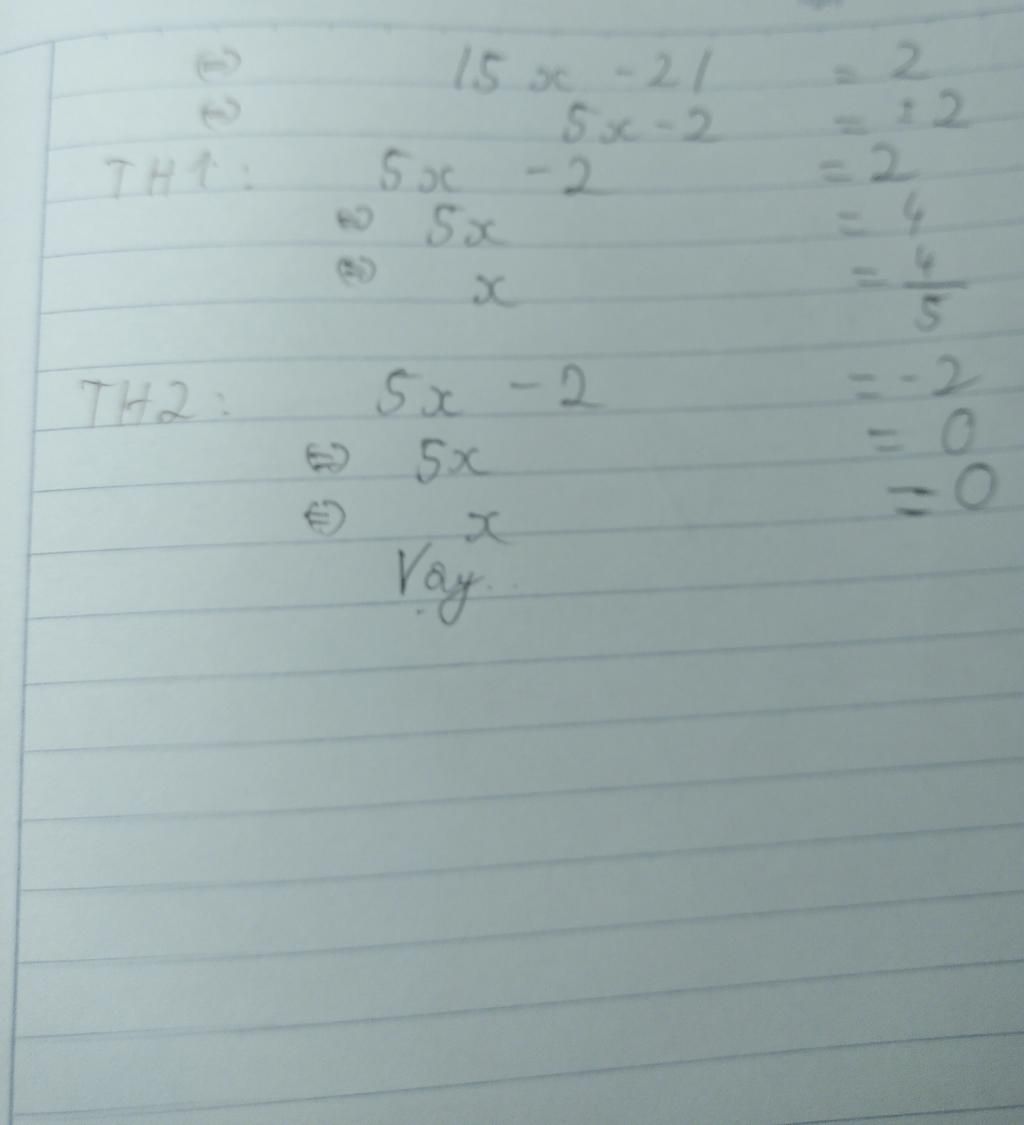 ⇔ |5x - 2| = 2
⇔ 5x - 2 = ±2
TH1: 5x - 2 = 2
⇔ 5x = 4
⇔ x = 4/5
TH2: 5x - 2 = -2
⇔ 5x = 0
⇔ x = 0
Vậy...